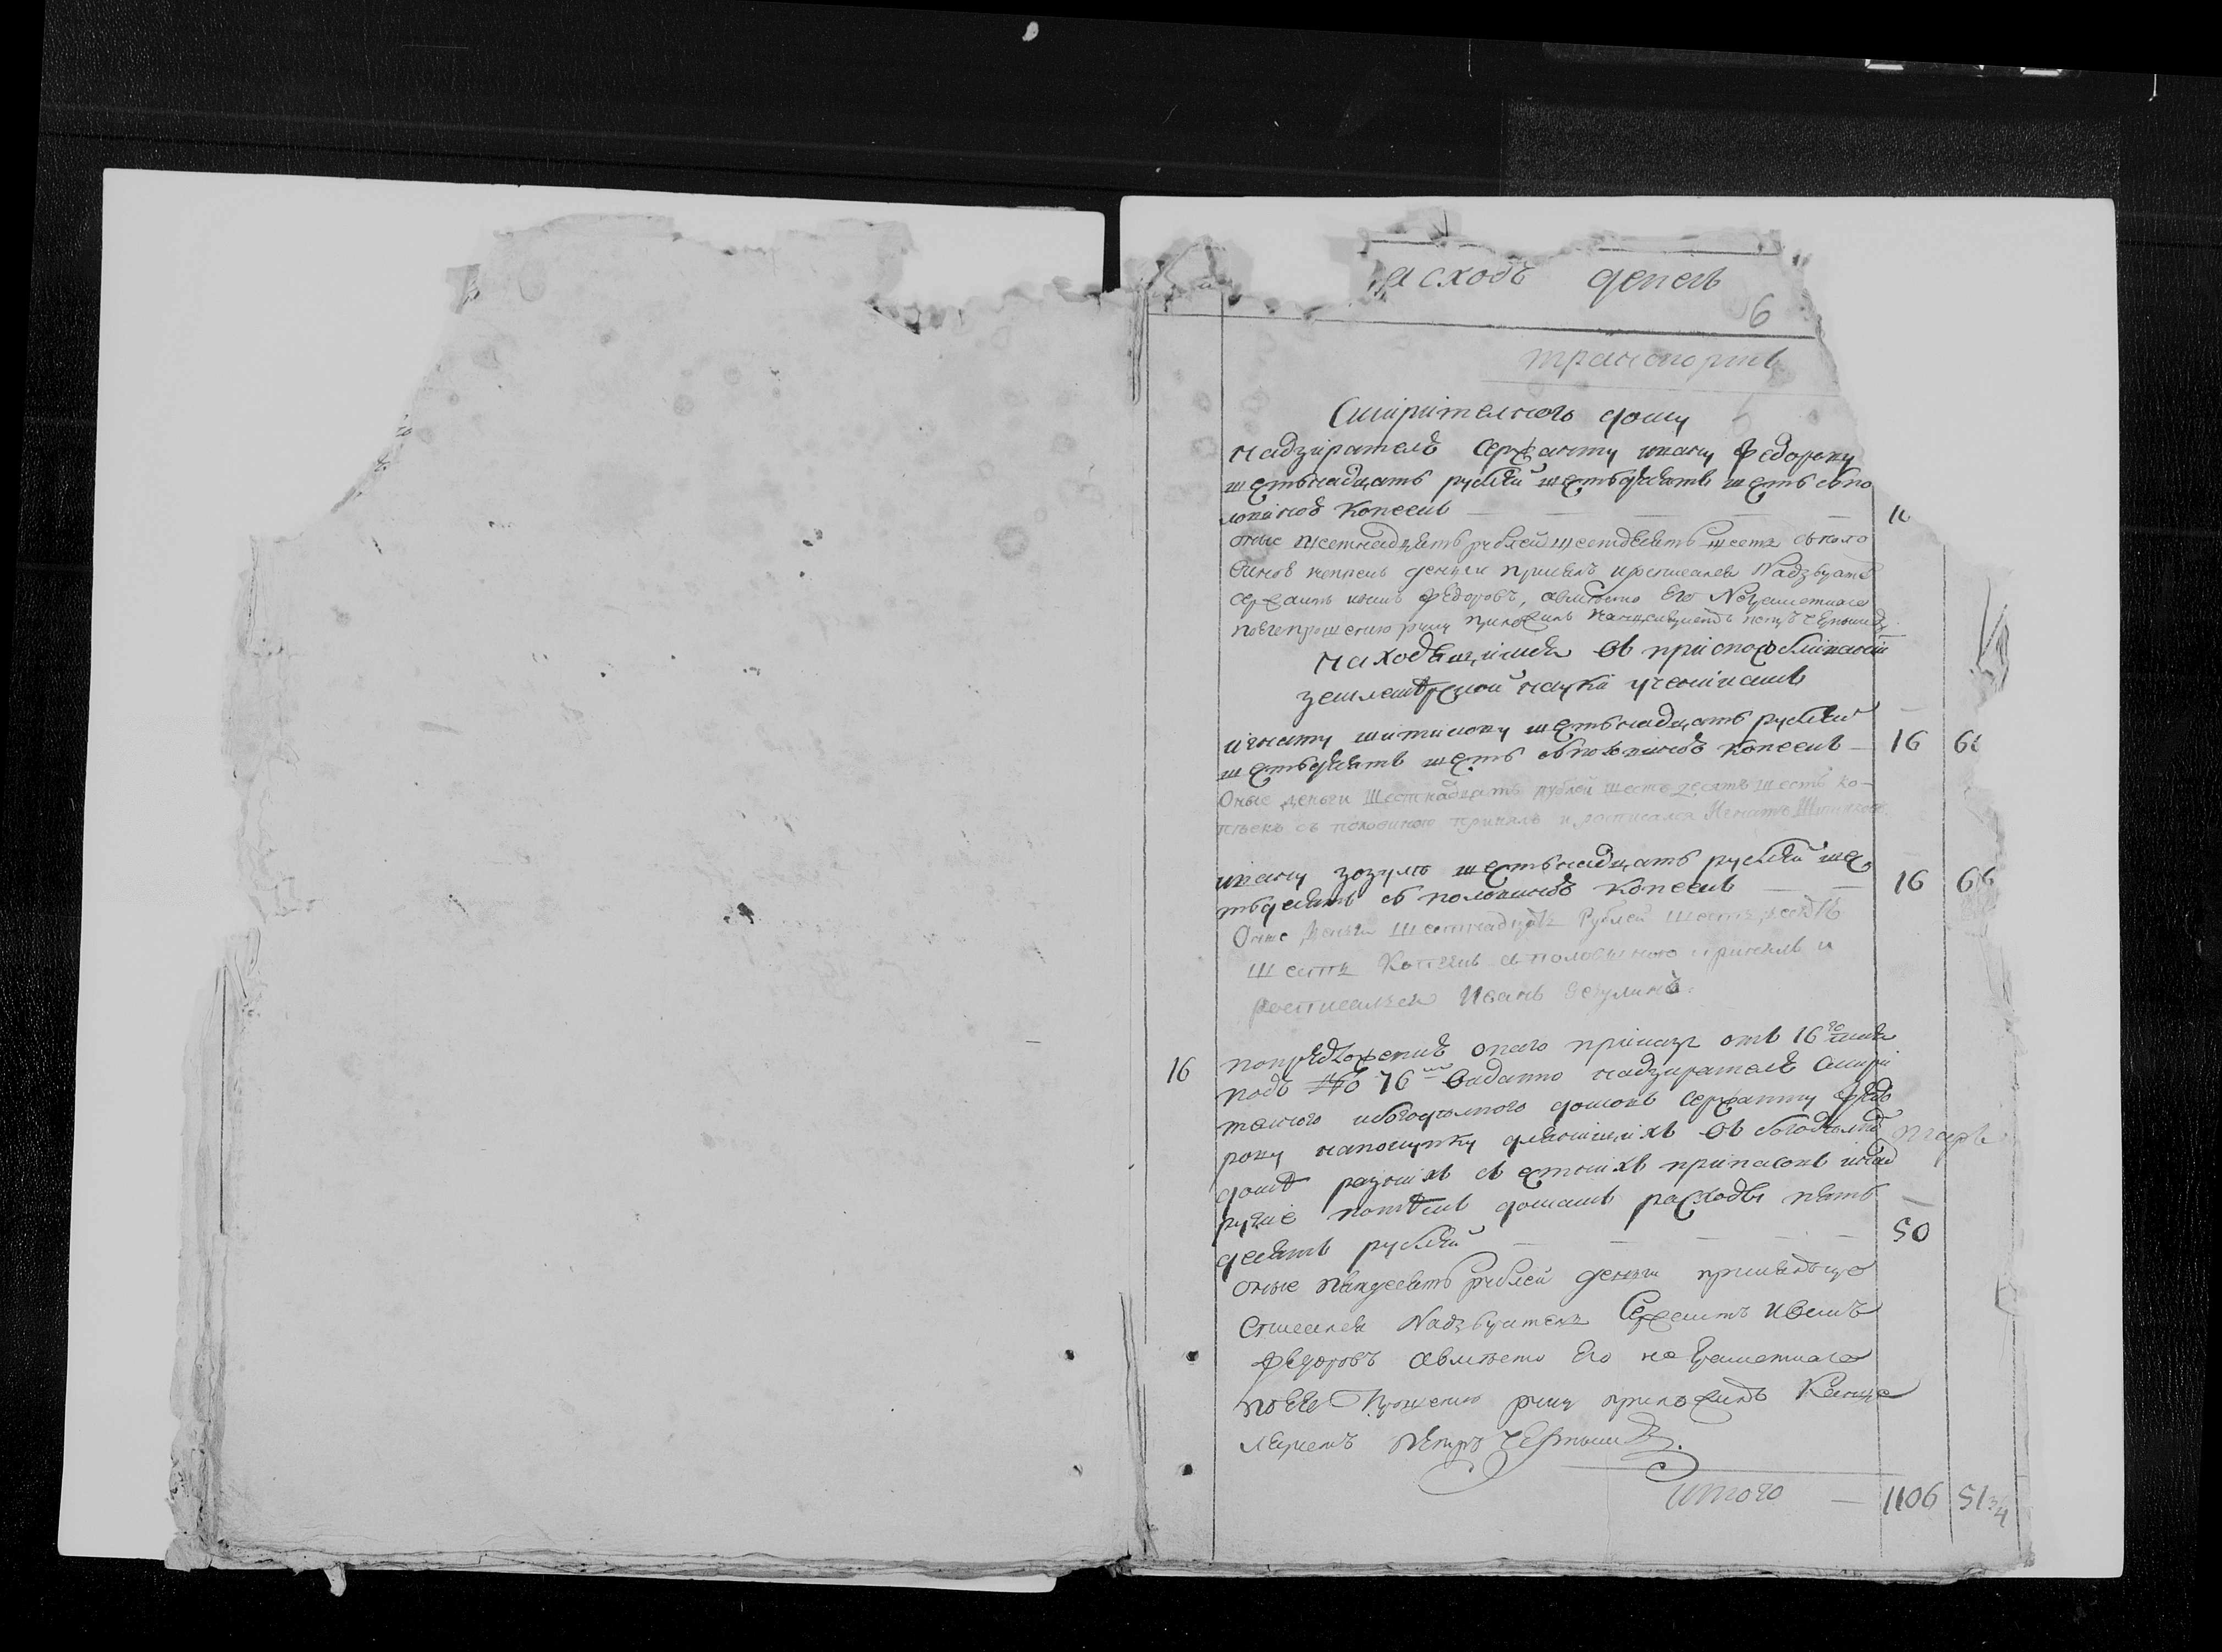 асходъ денегъ
6
транспортъ
Смирителного дому
надзирателю сержанту ивану Федорову
шестьнадцать рублей шестьдесятъ шесть съ по
ловиною копеекъ — 16
оные шестнадцать рублей шестдесять шесть съ поло
виною копеекъ денги принелъ и росписался Надзиратель
сержантъ иванъ федоровъ, авместо Его Неграмотнаго
поего прошению руку приложилъ канцеляристъ петръ Чернышевъ
находящимся въ приспособливаніи
землемѣрской науки ученикамъ
игнату шитикову шестьнадцать рублей
шестьдесятъ шесть съ половиною копеекъ — 16 66
Оные деньги Шестнадцать рублей шестьдесятъ шесть ко-
пѣекъ съ половиною принялъ и росписался Игнатъ Шитиковъ
ивану зозулю шестьнадцать рублей шес
тьдесятъ съ половиною копеекъ — 16 66
Оные деньги Шестнадцать Рублей шестьдесятъ
шесть Копеекъ съ половиною принялъ и
росписался Иванъ Зозулинъ.
16 попредложению онаго приказа отъ 16го
подъ №о 76мъ выдано надзирателю смири
телного и богоделного домовъ сержанту Федо
рову напокупку въ богоделномъ
доме разныхъ съестныхъ припасовъ инад
ругие потемъ домамъ расходы пять
десятъ рублей — 50
оные пятдесятъ рублей денги принелъ иро
списался Надзиратель Сержантъ Иванъ
федоровъ авместо Его неграмотнаго
поего Прошению руку приложилъ Канце
ляристъ петръ Чернышевъ.
итого — 1106 51 3/4